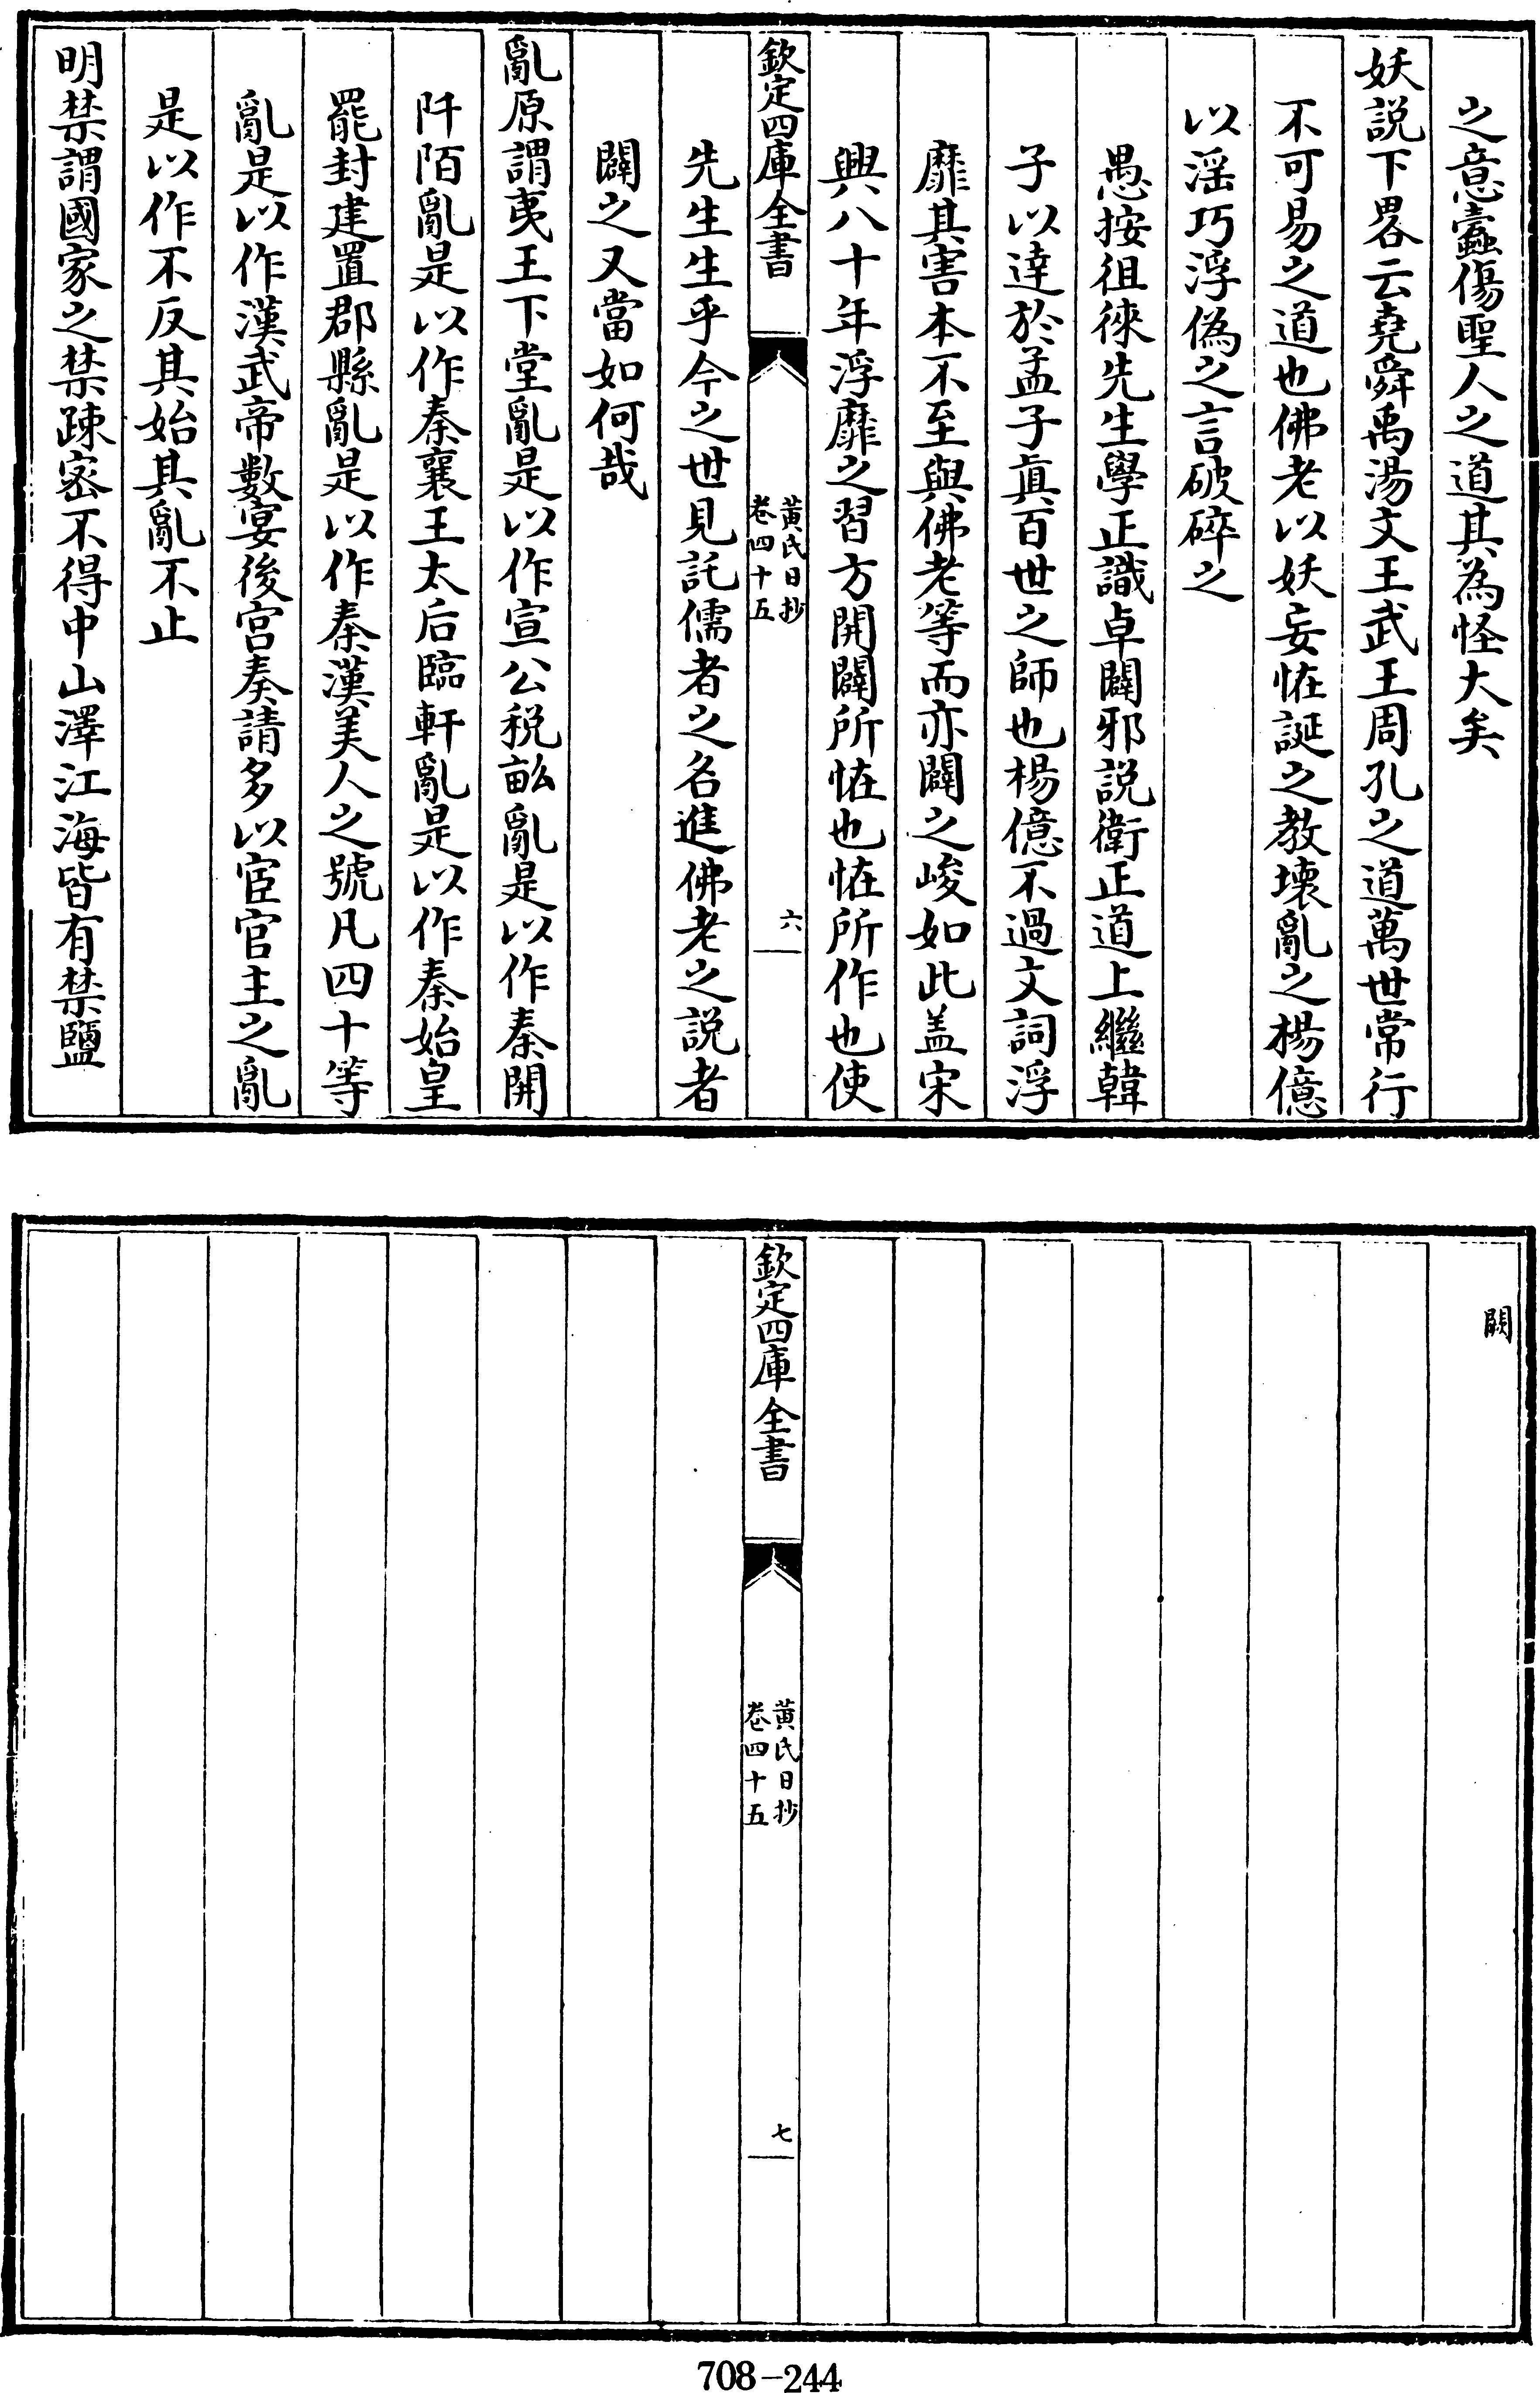 之意蠹傷聖人之道其為怪大矣
妖説下畧云堯舜禹湯文王武王周孔之道萬世常行
不可易之道也佛老以妖妄恠誕之教壊亂之楊億
以淫巧浮偽之言破碎之
愚按徂徠先生學正識卓闢邪説衛正道上繼韓
子以達於孟子真百世之師也楊億不過文詞浮
靡其害本不至與佛老等而亦闢之峻如此盖宋
興八十年浮靡之習方開闢所恠也恠所作也使
欽定四庫全書
黃氏日抄
卷四十五
六
先生生乎今之世見託儒者之名進佛老之説者
闢之又當如何哉
亂原謂夷王下堂亂是以作宣公税畝亂是以作秦開
阡陌亂是以作秦襄王太后臨軒亂是以作秦始皇
罷封建置郡縣亂是以作秦漢美人之號凡四十等
亂是以作漢武帝數宴後宫奏請多以宦官主之亂
是以作不反其始其亂不止
明禁謂國家之禁疎宻不得中山澤江海皆有禁鹽
闕
欽定四庫全書
黃氏日抄
卷四十五
七
708-244